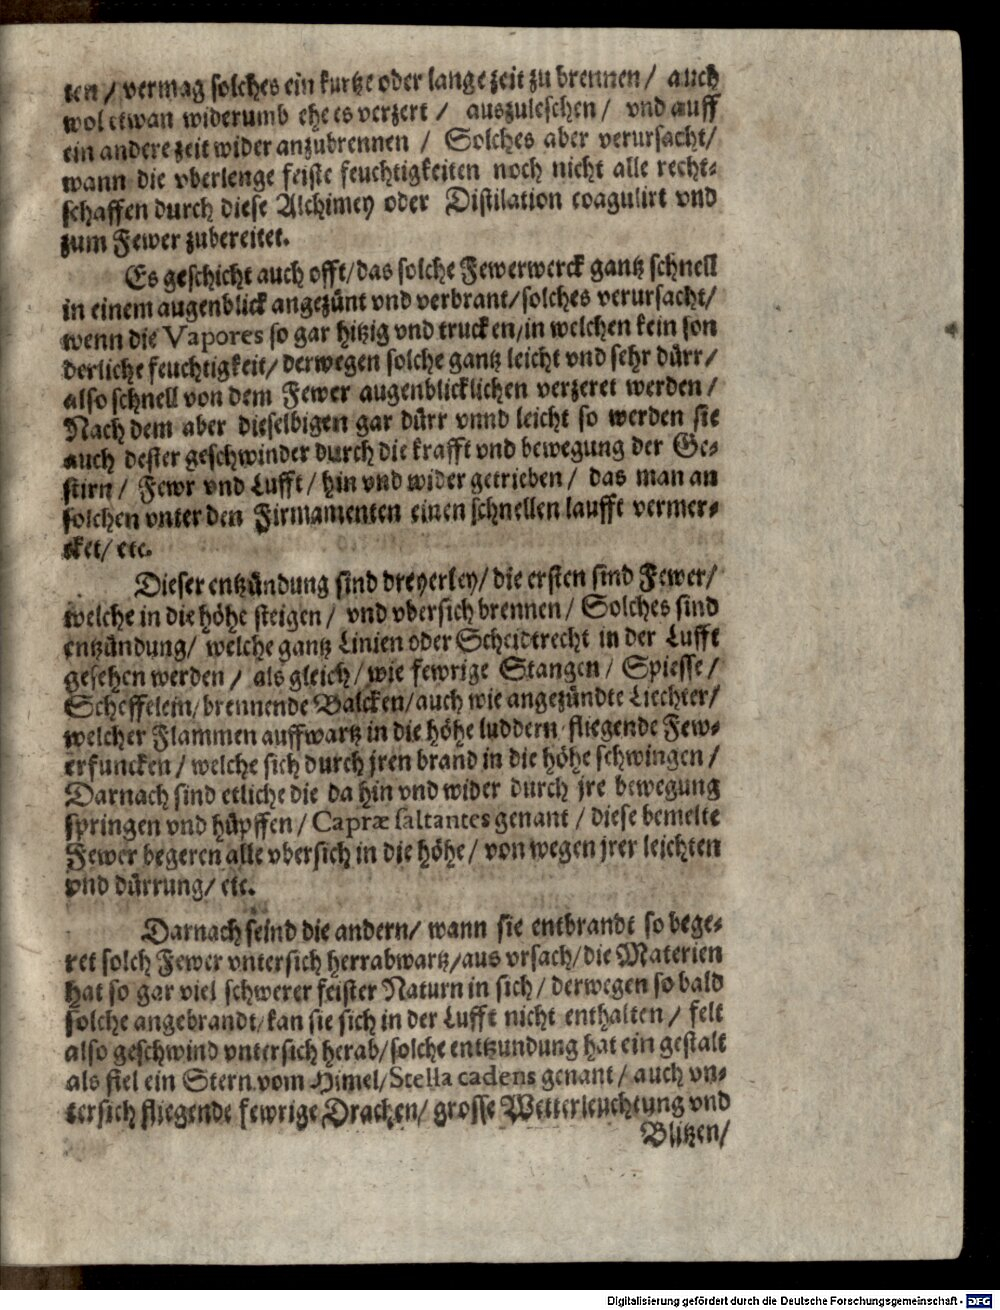 ten / vermag solches ein kurtze oder lange zeit zu brennen / auch
wol etwan widerumb ehe es verzert / auszuleschen / vnd auff
ein andere zeit wider anzubrennen / Solches aber verursacht/
wann die vberlenge feiste feuchtigkeiten noch nicht alle recht-
schaffen durch diese Alchimey oder Distilation coagulirt vnd
zum Fewer zubereitet.
Es geschicht auch offt/das solche Fewerwerck gantz schnell
in einem augenblick angezünt vnd verbrant/solches verursacht/
wenn die Vapores so gar hitzig vnd trucken/in welchen kein son
derliche feuchtigkeit/ derwegen solche gantz leicht vnd sehr dürr/
also schnell von dem Fewer augenblicklichen verzeret werden/
Nach dem aber dieselbigen gar dürr vnnd leicht so werden sie
auch dester geschwinder durch die krafft vnd bewegung der Ge-
stirn / Fewr vnd Lufft / hin vnd wider getrieben / das man an
solchen vnter den Firmamenten einen schnellen laufft vermer-
cket/ etc.
Dieser entzündung sind dreyerley/ die ersten sind Fewer/
welche in die höhe steigen / vnd vbersich brennen / Solches sind
entzündung/ welche gantz Linien oder Scheidtrecht in der Lufft
gesehen werden / als gleich / wie fewrige Stangen / Spiesse /
Scheffelein/ brennende Balcken/ auch wie angezündte Liechter/
welcher Flammen auffwartz in die höhe luddern fliegende Few-
erfuncken / welche sich durch jren brand in die höhe schwingen /
Darnach sind etliche die da hin vnd wider durch jre bewegung
springen vnd hüpffen / Capræ saltantes genant / diese bemelte
Fewer begeren alle vbersich in die höhe / von wegen jrer leichten
vnd dürrung/ etc.
Darnach seind die andern/ wann sie entbrandt so bege-
ret solch Fewer vntersich herrabwartz/aus vrsach/die Materien
hat so gar viel schwerer feister Naturn in sich / derwegen so bald
solche angebrandt/ kan sie sich in der Lufft nicht enthalten / felt
also geschwind vntersich herab/ solche entzundung hat ein gestalt
als fiel ein Stern vom Himel/ Stella cadens genant / auch vn-
tersich fliegende fewrige Drachen/ grosse Wetterleuchtung vnd
Blitzen/
Digitalisierung gefördert durch die Deutsche Forschungsgemeinschaft - DFG